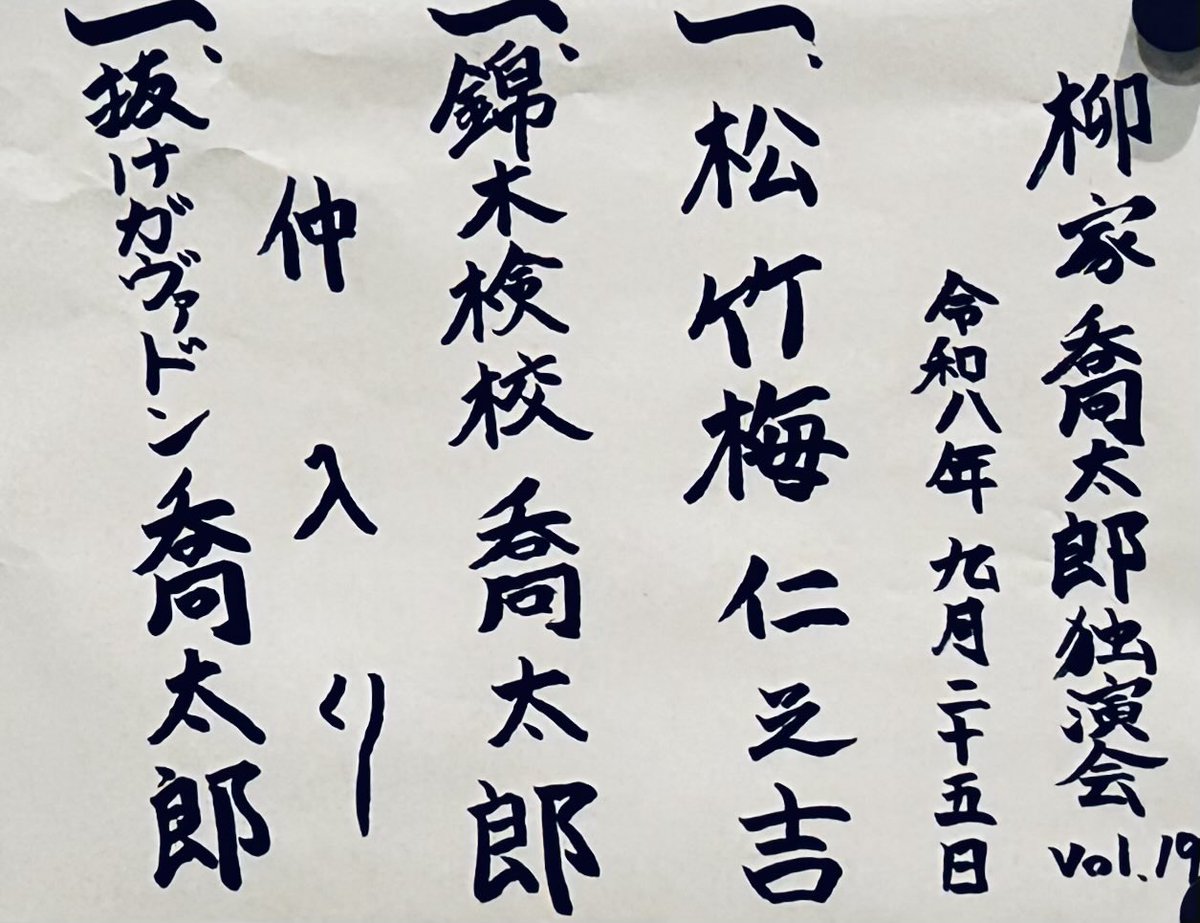 柳家喬太郎独演会 vol.19
令和八年 九月二十五日
一、松竹梅 仁之吉
一、錦木検校 喬太郎
仲入り
一、抜けガヴァドン 喬太郎